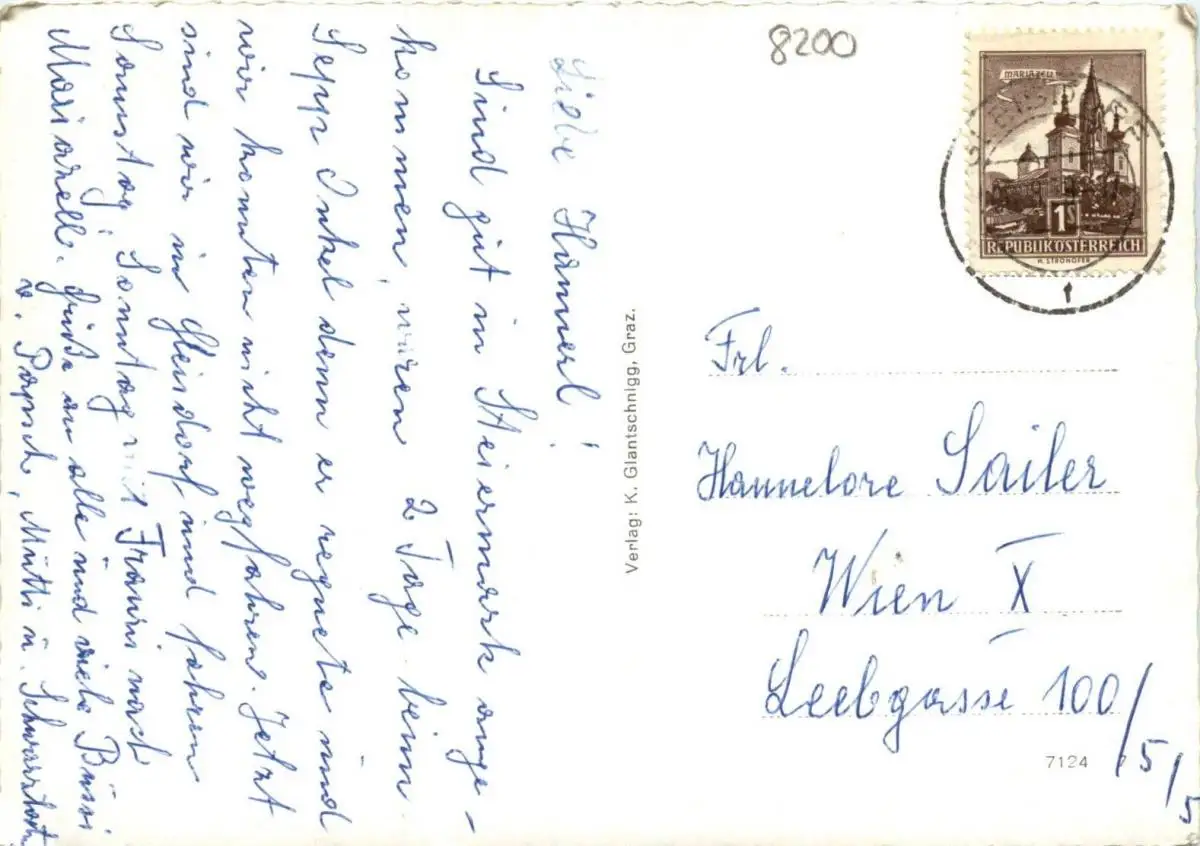 8200
MARIAZELL
1S
REPUBLIK ÖSTERREICH
H. STROHOFER
Liebe Hannerl!
Sind gut in Steiermark ange-
kommen, waren 2 Tage beim
Sepp Onkel denn er regnete und
wir konnten nicht wegfahren. Jetzt
sind wir in Gleisdorf und fahren
Samstag, Sonntag mit Franzi nach
Mariazell. Grüße an alle und viele Bussi
v. Papsch, Mutti u.
Verlag: K. Glantschnigg, Graz.
Frl.
Hannelore Sailer
Wien X
Leebgasse 100/5/5
7124